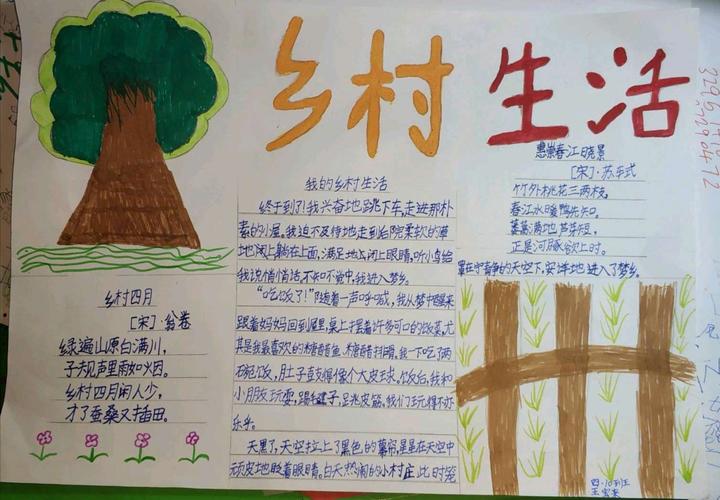 乡村生活
乡村四月
[宋]·翁卷
绿遍山原白满川，
子规声里雨如烟。
乡村四月闲人少，
才了蚕桑又插田。
我的乡村生活
终于到了！我兴奋地跳下车，走进那朴
素的小屋。我迫不及待地走到后院柔软的草
地闭上躺在上面，满足地闭上眼睛，听小鸟给
我说悄悄话，不知不觉中，我进入梦乡。
“吃饭了！”随着一声呼喊，我从梦中醒来
跟着妈妈回到屋里，桌上摆着许多可口的饭菜，尤
其是我最喜欢的糖醋鱼、糖醋排骨，我一下吃了两
碗饭，肚子直撑得像个大皮球。饭后，我和
小朋友玩耍，踢毽子，跳皮筋，我们玩得不亦
乐乎。
天黑了，天空拉上了黑色的幕帘，星星在天空中
顽皮地眨着眼睛。白天热闹的小村庄此时笼
惠崇春江晓景
[宋]·苏轼
竹外桃花三两枝，
春江水暖鸭先知。
蒌蒿满地芦芽短，
正是河豚欲上时。
罩在宁静的天空下，安详地进入了梦乡。
四·10班